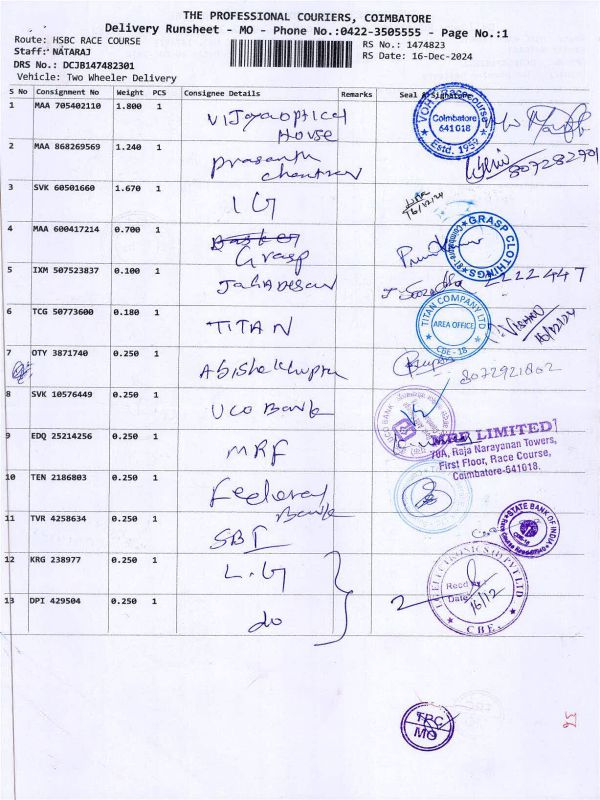 THE PROFESSIONAL COURIERS, COIMBATORE
Delivery Runsheet - MO - Phone No.:0422-3505555 - Page No.:1
Route: HSBC RACE COURSE
RS No.: 1474823
Staff: NATARAJ
RS Date: 16-Dec-2024
DRS No.: DCJB147482301
Vehicle: Two Wheeler Delivery
S No Consignment No Weight PCS Consignee Details Remarks Seal & Signature
1 MAA 705402110 1.800 1 Vijaya optical
House
Coimbatore
641018
Estd. 1959
2 MAA 868269569 1.240 1 Prasanth
3 SVK 60501660 1.670 1 IG
16/12/24
4 MAA 600417214 0.700 1 Grasp
GRASP CLOTHINGS
5 IXM 507523837 0.100 1 Jahadesan
6 TCG 50773600 0.180 1 TITAN
TITAN COMPANY LTD
AREA OFFICE
CBE - 18
16/12/24
7 OTY 3871740 0.250 1 Abishek Gupta
8072921802
8 SVK 10576449 0.250 1 UCO Bank
UCO BANK
9 EDQ 25214256 0.250 1 MRF
MRF LIMITED
70A, Raja Narayanan Towers,
First Floor, Race Course,
Coimbatore-641018.
10 TEN 2186803 0.250 1 Federal
Bank
11 TVR 4258634 0.250 1 SBI
STATE BANK OF INDIA
12 KRG 238977 0.250 1 L.G
LG ELECTRONICS (I) PVT LTD
Recd by
Date 16/12
CBE.
13 DPI 429504 0.250 1 do
2
TPC
MO